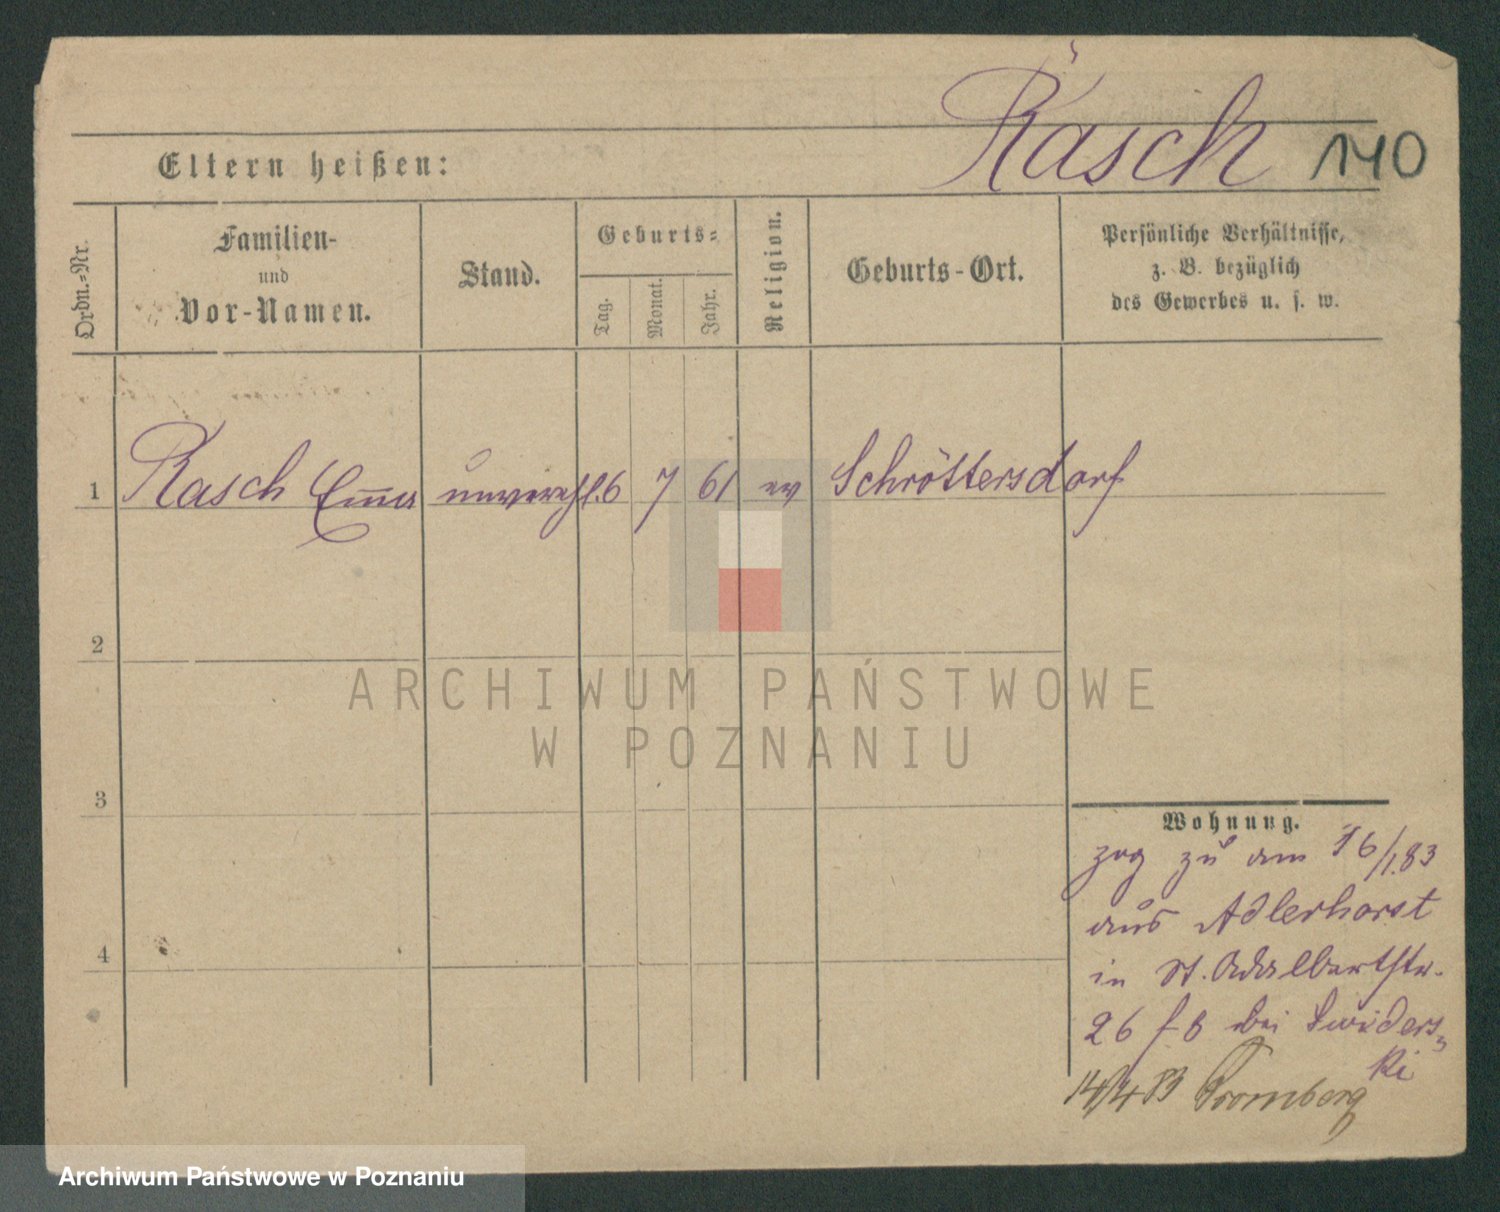 Rasch 140
Eltern heißen:
Ordn.-Nr.
Familien-
und
Vor-Namen.
Stand.
Geburts-
Tag.
Monat.
Jahr.
Religion.
Geburts-Ort.
Persönliche Verhältnisse,
z. B. bezüglich
des Gewerbes u. s. w.
1 Rasch Emma unverehl. 6 7 61 ev Schröttersdorf
2
3
4
Wohnung.
zog zu am 16/1.83
aus Adlerhorst
in St. Adalbertstr.
26 bei Swiders-
ki
14/4 83 Bromberg
ARCHIWUM PAŃSTWOWE
W POZNANIU
Archiwum Państwowe w Poznaniu